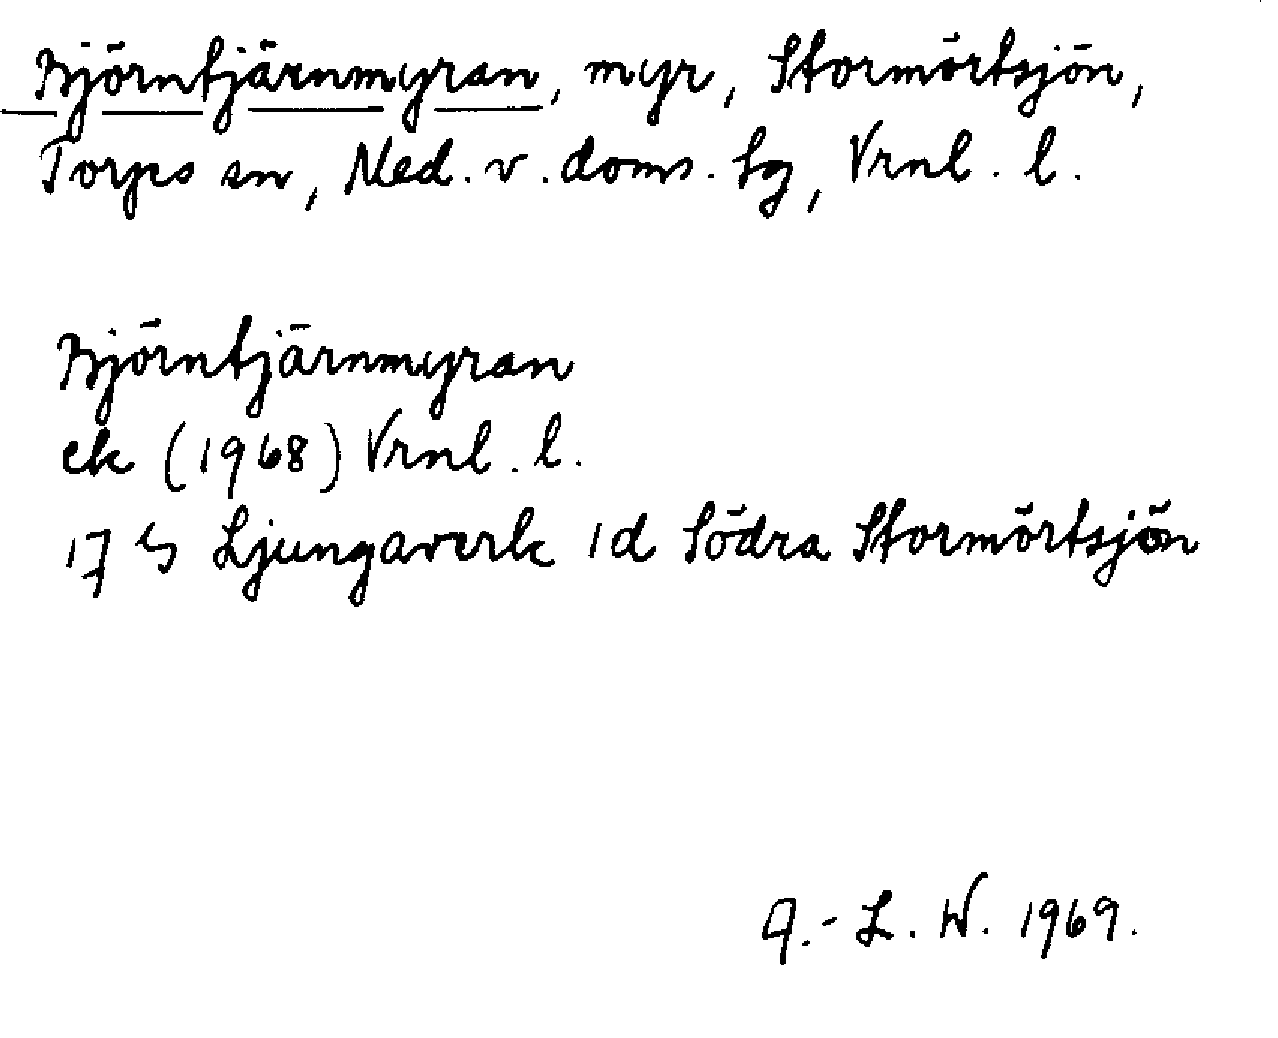 Björntjärnmyran, myr, Stormörtsjön,
Torps sn, Ned. v. doms. tg, Vrnl. l.
Björntjärnmyran
ek (1968) Vrnl. l.
17 G Ljungaverk 1d Södra Stormörtsjön
A.-L. W. 1969.